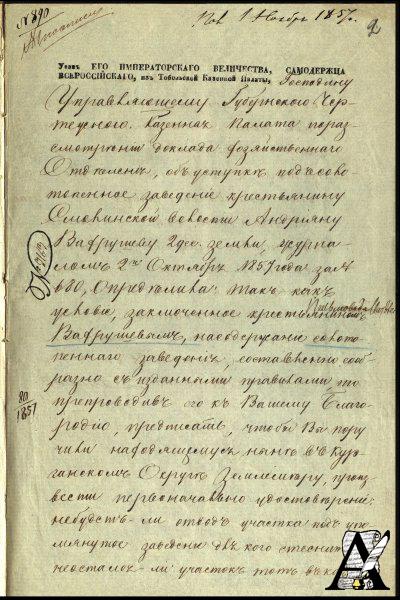 № 890
Пол. 1 Ноября 1857 г.
2
Указъ ЕГО ИМПЕРАТОРСКАГО ВЕЛИЧЕСТВА, САМОДЕРЖЦА
ВСЕРОССІЙСКАГО, изъ Тобольской Казенной Палаты, Господину
Управляющему Губернскою Чер-
тежною. Казенная Палата по раз-
смотрѣніи доклада Хозяйственнаго
Отдѣленія, объ уступкѣ подъ сало-
топенное заведеніе крестьянину
Смолинской волости Андріяну
Вафрушеву 2 дес. земли, журна-
ломъ 2го Октября 1857 года за №
880, Опредѣлила: такъ какъ
условіе, заключенное крестьяниномъ
Вафрушевымъ, на содержаніе салото-
пеннаго заведенія, составлено сооб-
разно съ изданными правилами то
препроводивъ его къ Вашему Благо-
родію, предписать, чтобы Вы пору
чили находящемуся нынѣ въ Кур-
ганскомъ Округѣ Землемѣру, произ-
вести первоначально удостовѣреніе:
не будетъ-ли отводъ участка подъ упо-
мянутое заведеніе для кого стѣснит
не осталось-ли участокъ тотъ въ ка
80
1857